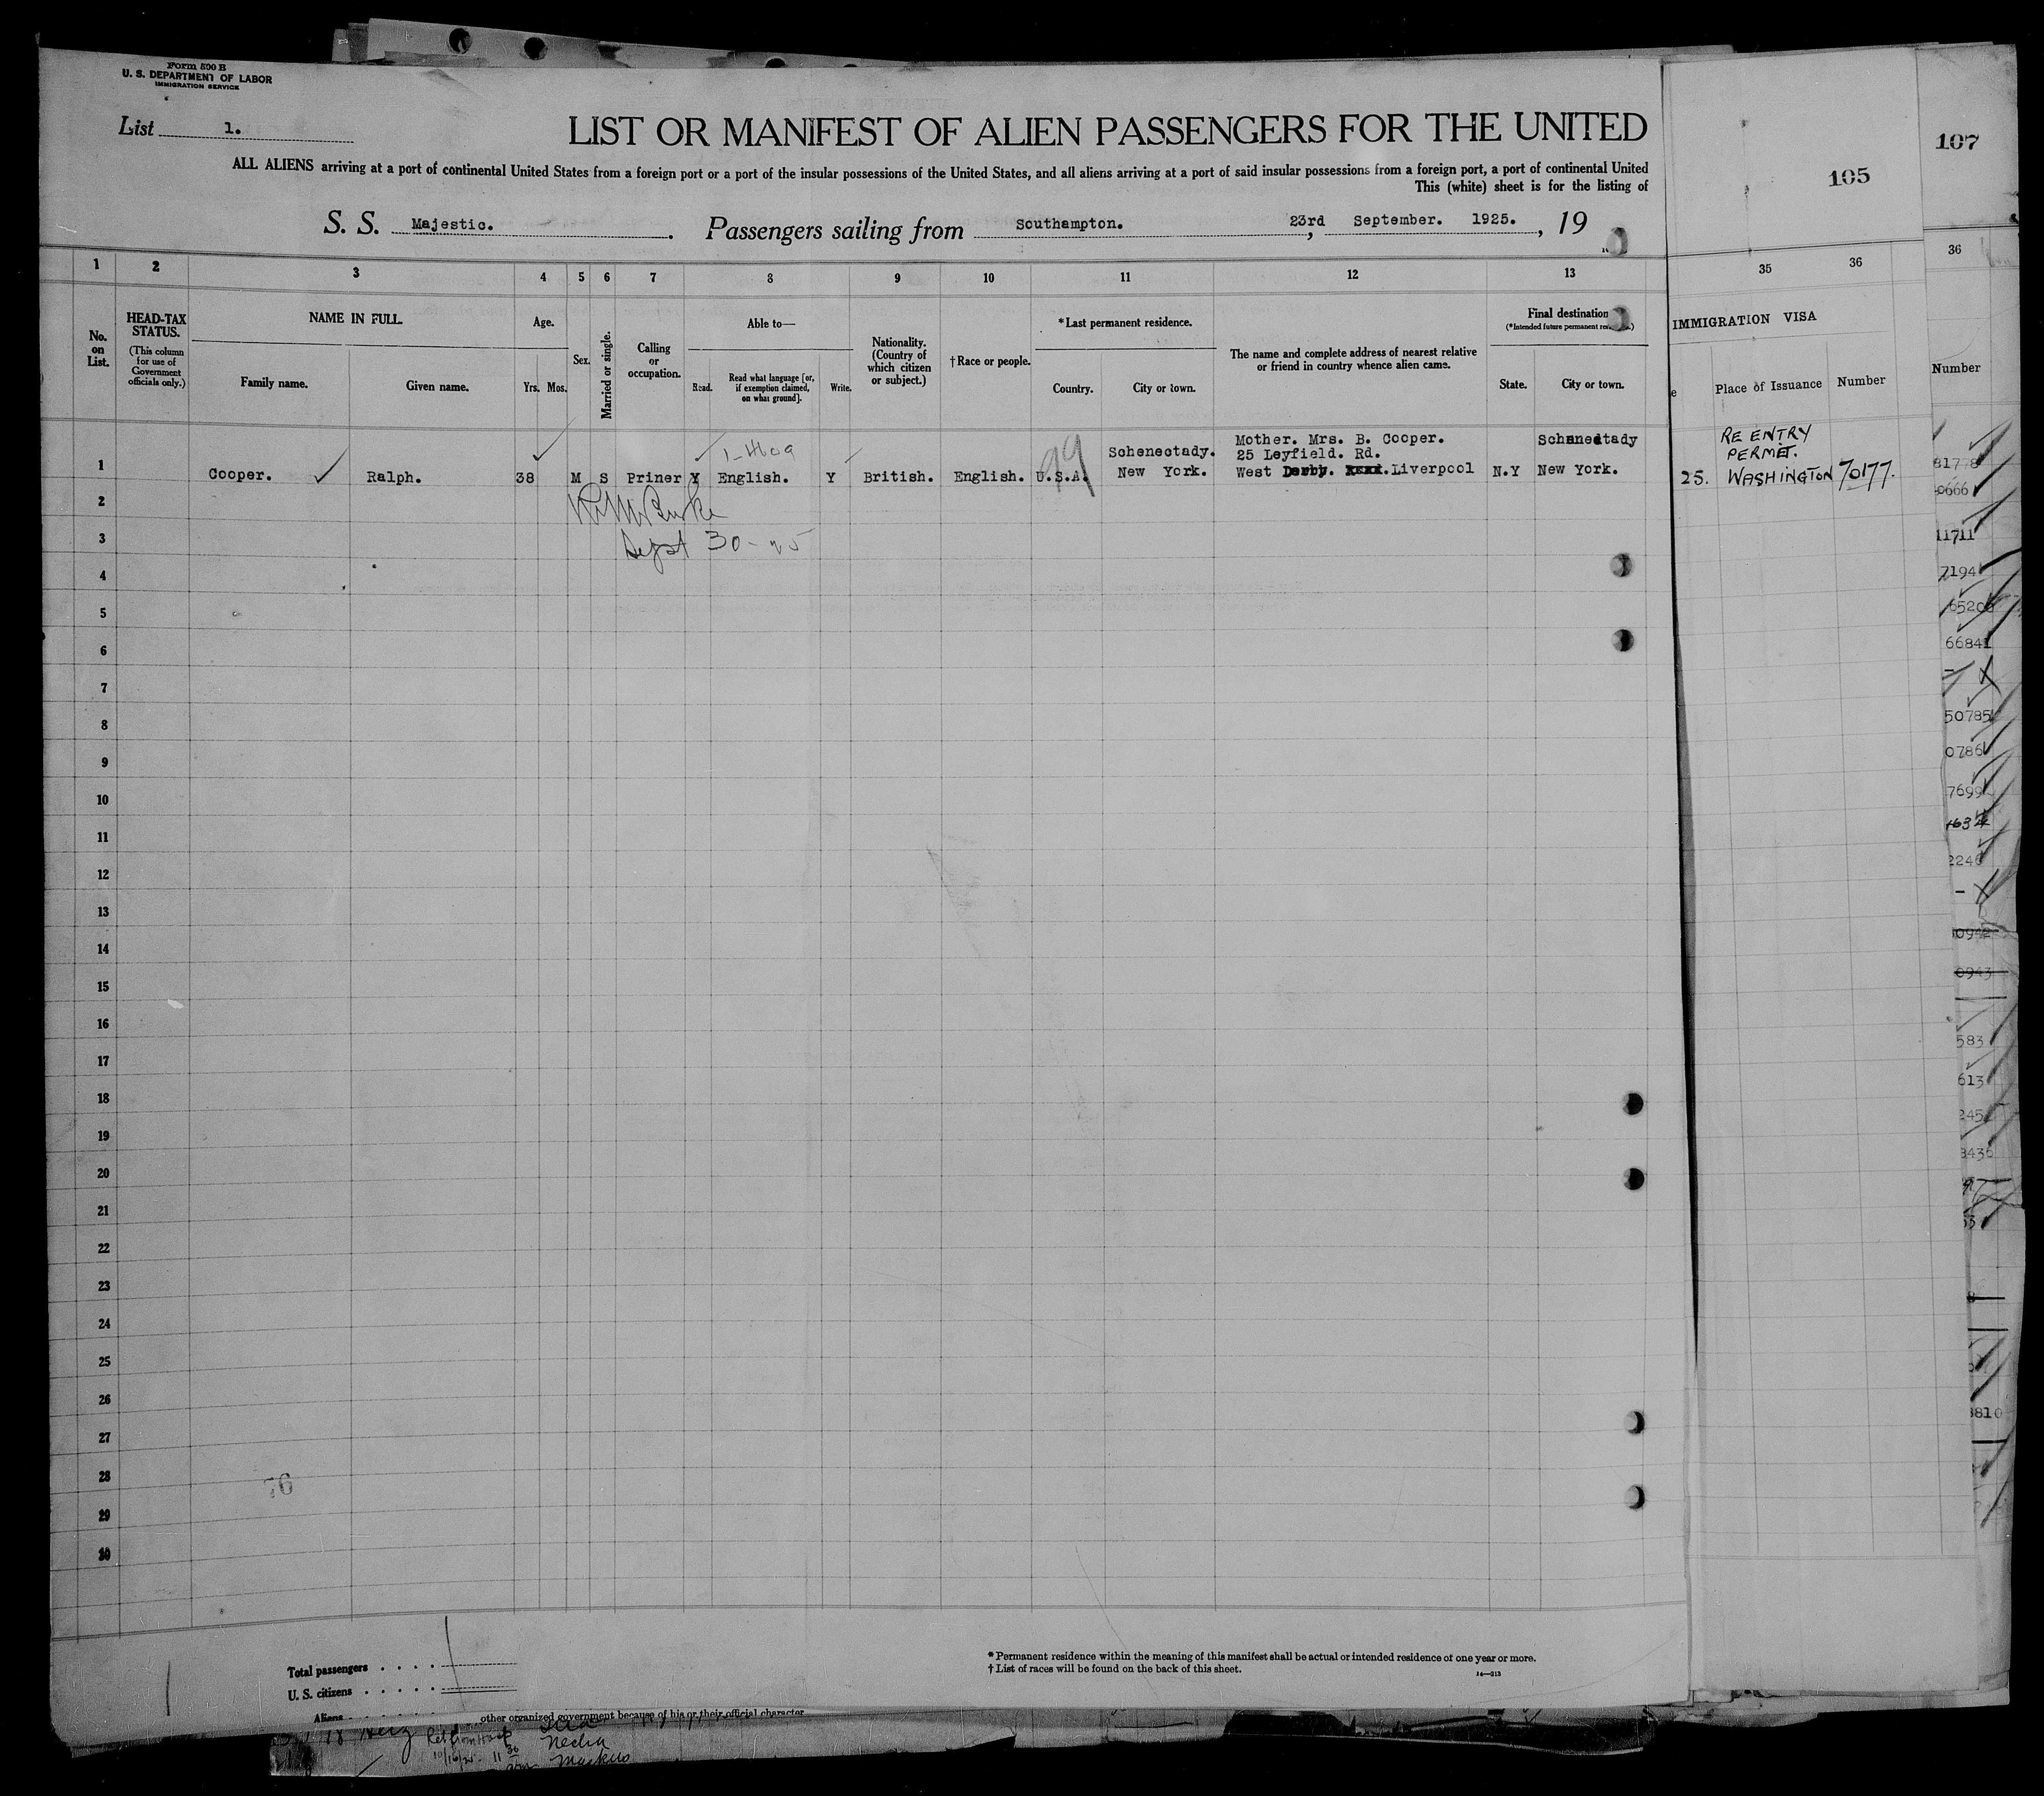 Form 500 B
U. S. DEPARTMENT OF LABOR
IMMIGRATION SERVICE
List 1.
LIST OR MANIFEST OF ALIEN PASSENGERS FOR THE UNITED
ALL ALIENS arriving at a port of continental United States from a foreign port or a port of the insular possessions of the United States, and all aliens arriving at a port of said insular possessions from a foreign port, a port of continental United
This (white) sheet is for the listing of
S. S. Majestic. Passengers sailing from Southampton. 23rd, September. 1925., 19
105
107
1 2 3 4 5 6 7 8 9 10 11 12 13
35 36
36
No. on List.
HEAD-TAX STATUS.
(This column for use of Government officials only.)
NAME IN FULL.
Family name. Given name.
Age.
Yrs. Mos.
Sex.
Married or single.
Calling or occupation.
Able to—
Read. Read what language [or, if exemption claimed, on what ground]. Write.
Nationality. (Country of which citizen or subject.)
†Race or people.
*Last permanent residence.
Country. City or town.
The name and complete address of nearest relative or friend in country whence alien came.
Final destination
(*Intended future permanent
State. City or town.
IMMIGRATION VISA
Place of Issuance Number
Number
Mother. Mrs. B. Cooper. Schenectady
Schenectady. 25 Leyfield. Rd.
1 Cooper. Ralph. 38 M S Priner Y English. Y British. English. U.S.A. New York. West Derby. Liverpool N.Y New York.
99
RE ENTRY
PERMET.
25. WASHINGTON 70177.
2
Sept 30-25
3
4
5
6
7
8
9
10
11
12
13
14
15
16
17
18
19
20
21
22
23
24
25
26
27
28
76
29
30
81778
0666
11711
7194
66841
50785
0786
7699
2246
583
613
245
3436
Total passengers
U. S. citizens
Aliens
*Permanent residence within the meaning of this manifest shall be actual or intended residence of one year or more.
†List of races will be found on the back of this sheet.
14—213
other organized government because of his or their official character
Necha
Markus